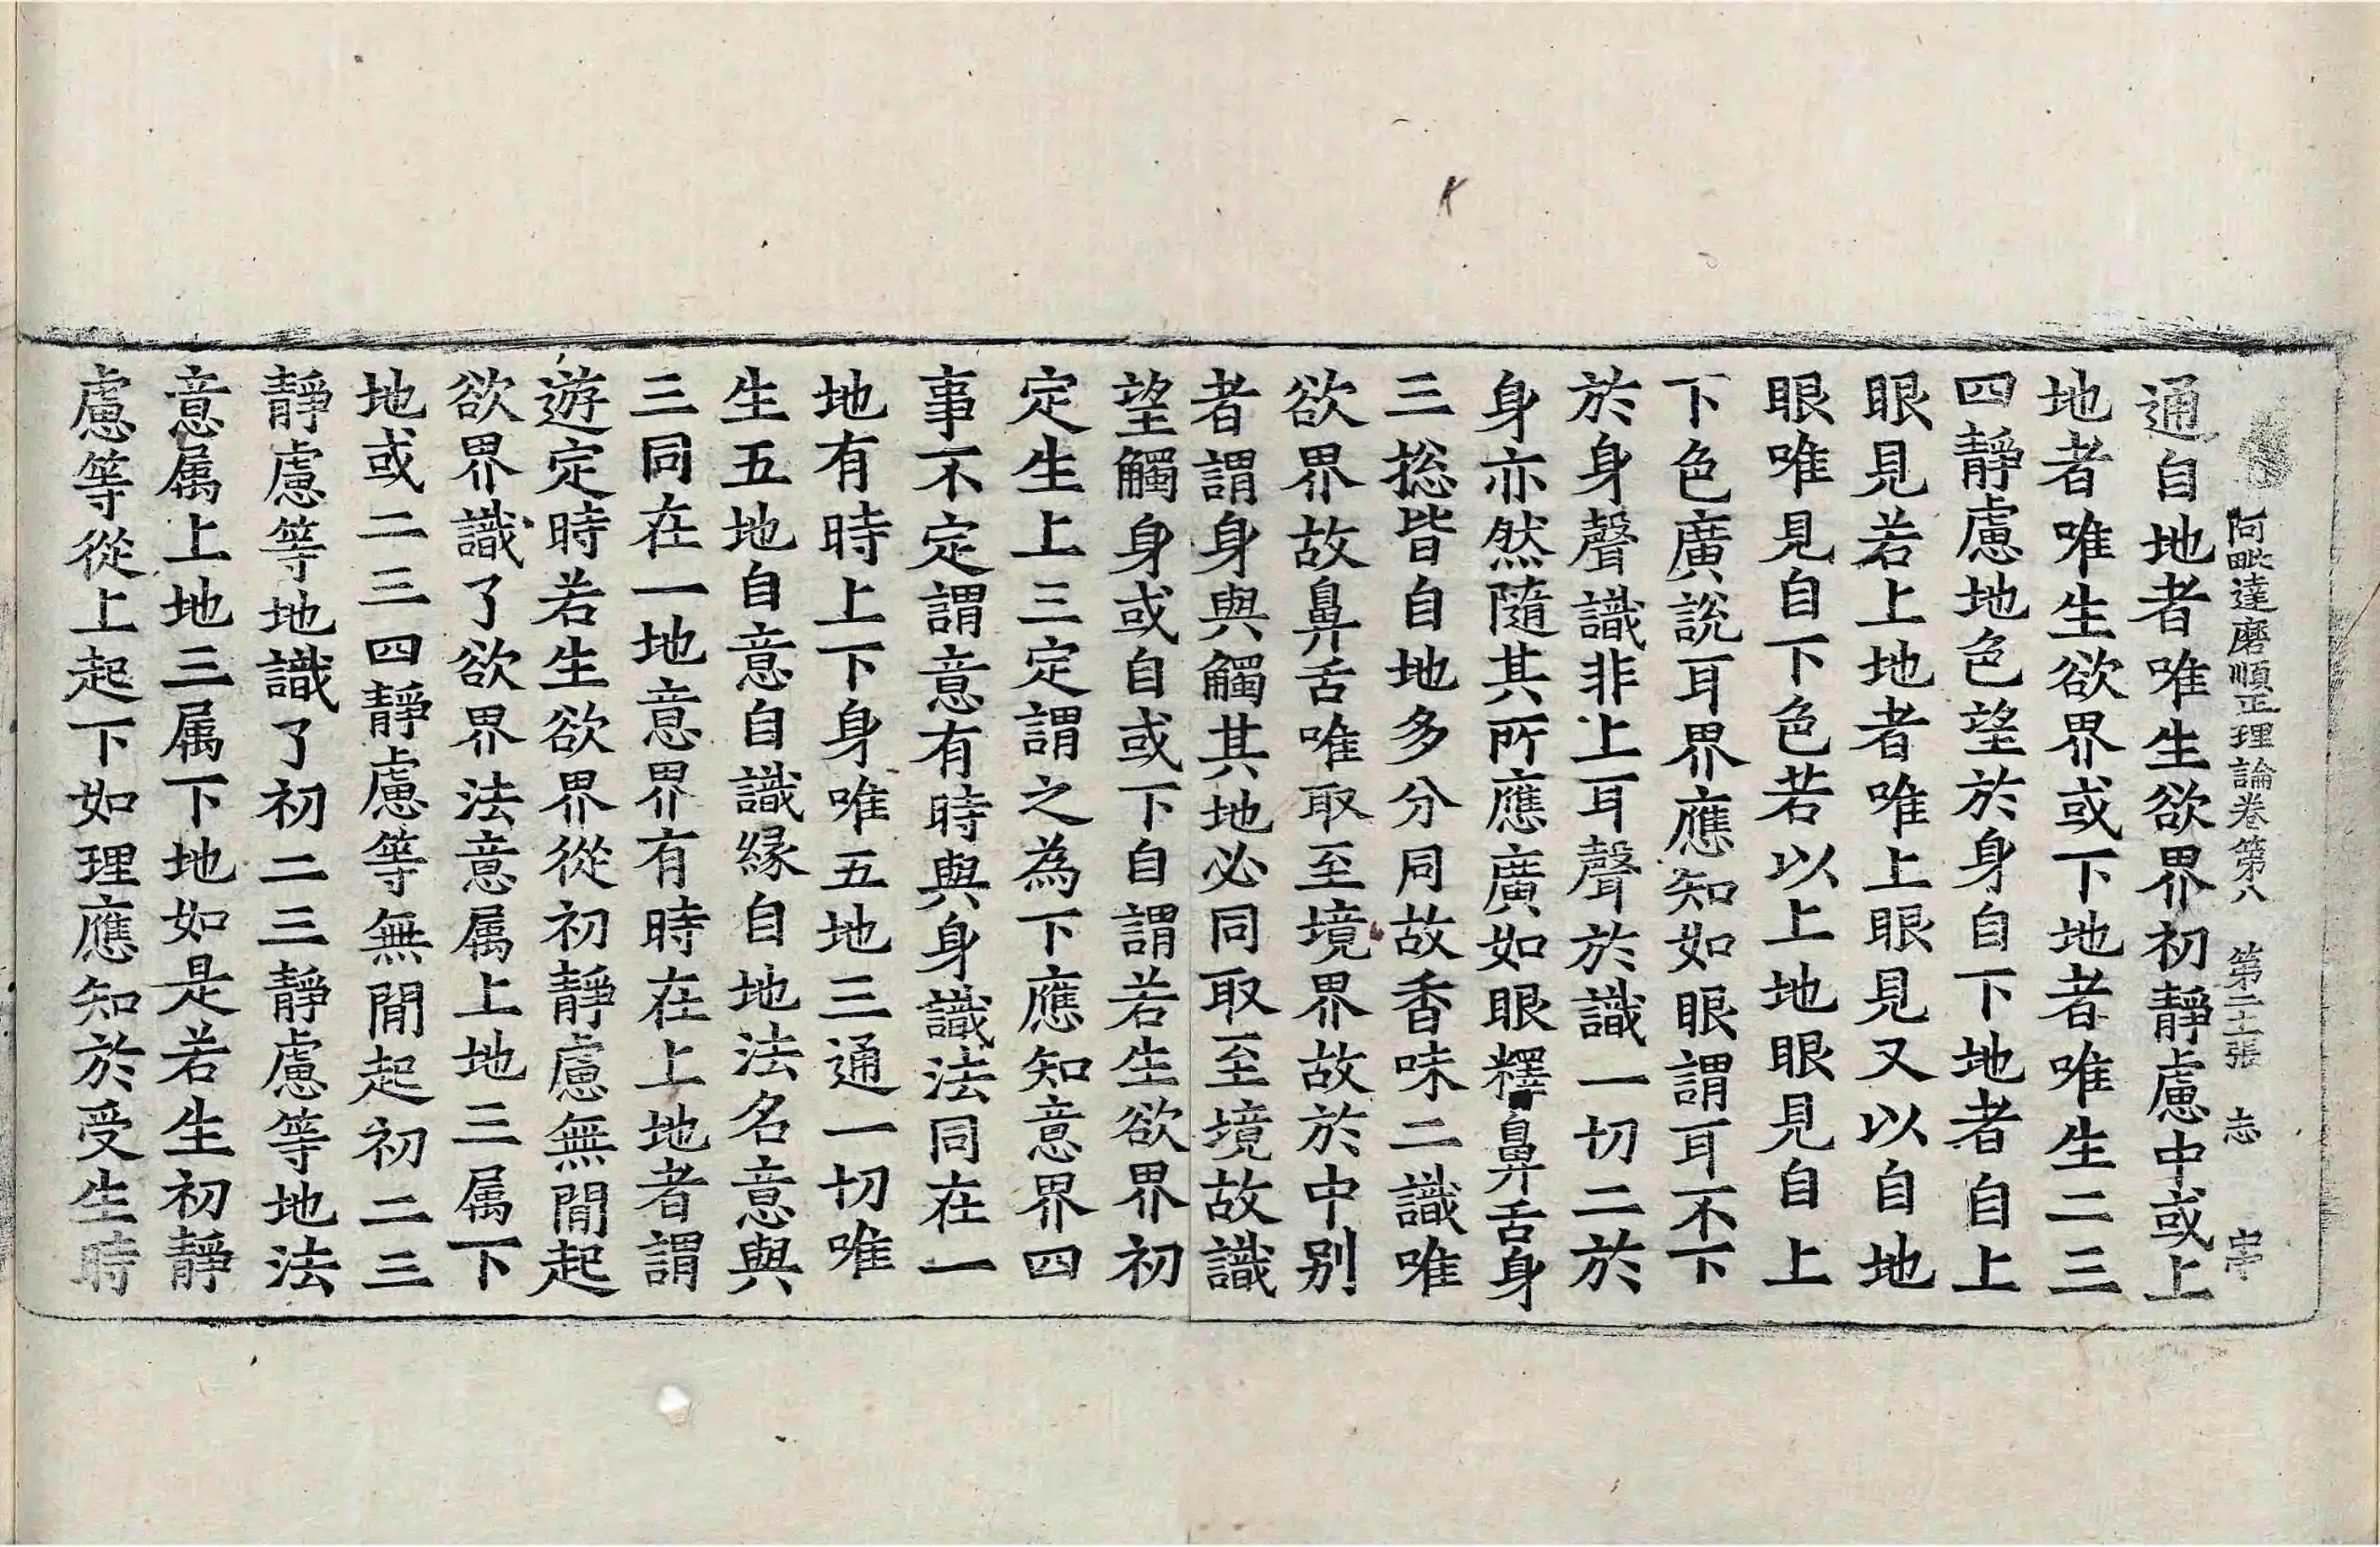 阿毗達磨順正理論卷第八 第二十張 志
通自地者唯生欲界初靜慮中或上
地者唯生欲界或下地者唯生二三
四靜慮地色望於身自下地者自上
眼見若上地者唯上眼見又以自地
眼唯見自下色若以上地眼見自上
下色廣說耳界應知如眼謂耳不下
於身聲識非上耳聲於識一切二於
身亦然隨其所應廣如眼釋鼻舌身
三捴皆自地多分同故香味二識唯
欲界故鼻舌唯取至境界故於中别
者謂身與觸其地必同取至境故識
望觸身或自或下自謂若生欲界初
定生上三定謂之為下應知意界四
事不定謂意有時與身識法同在一
地有時上下身唯五地三通一切唯
生五地自意自識緣自地法名意與
三同在一地意界有時在上地者謂
遊定時若生欲界從初靜慮無間起
欲界識了欲界法意属上地三属下
地或二三四靜慮等無間起初二三
靜慮等地識了初二三靜慮等地法
意属上地三属下地如是若生初靜
慮等從上起下如理應知於受生時